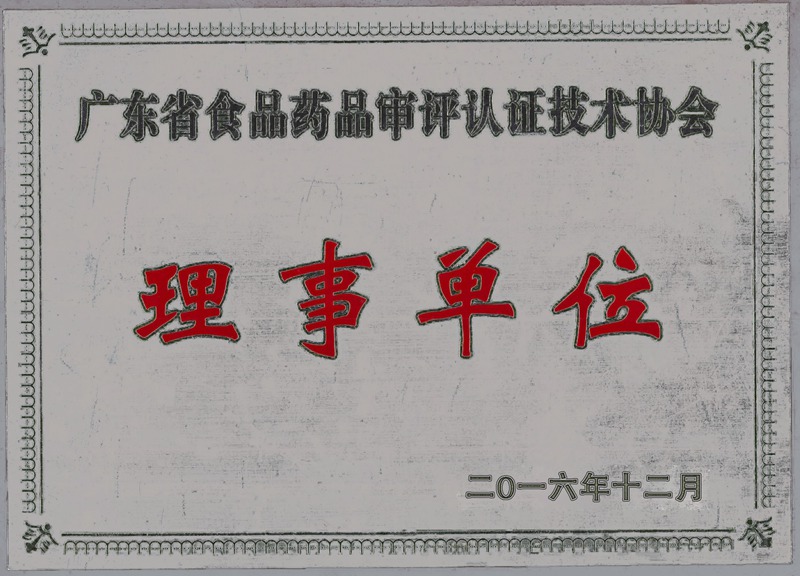 广东省食品药品审评认证技术协会
理事单位
二0一六年十二月